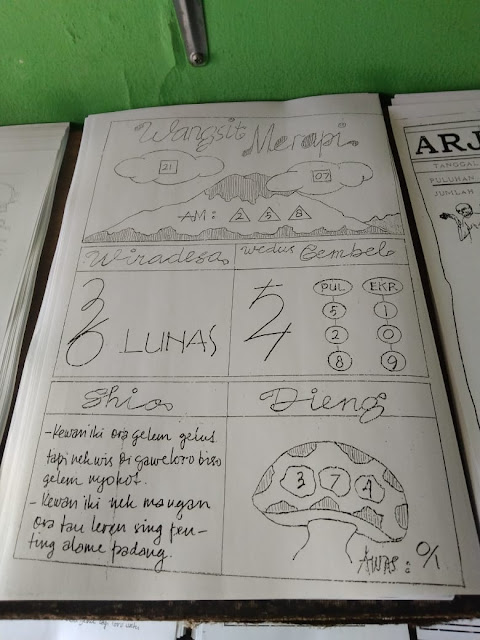 Wangsit Merapi
21
07
AM: 2 5 8
Wiradesa
Wedus Gembel
3
6 LUNAS
5
4
PUL EKR
5 1
2 0
8 9
Shio
- Kewan iki ora gelem gelut
tapi nek wis di gawe loro biso
gelem nyokot.
- Kewan iki nek mangan
ora tau leren sing pen-
ting alame padang.
Dieng
3 7 4
AWAS: 0/1
ARJ
TANGGAL
PULUHAN
JUMLAH